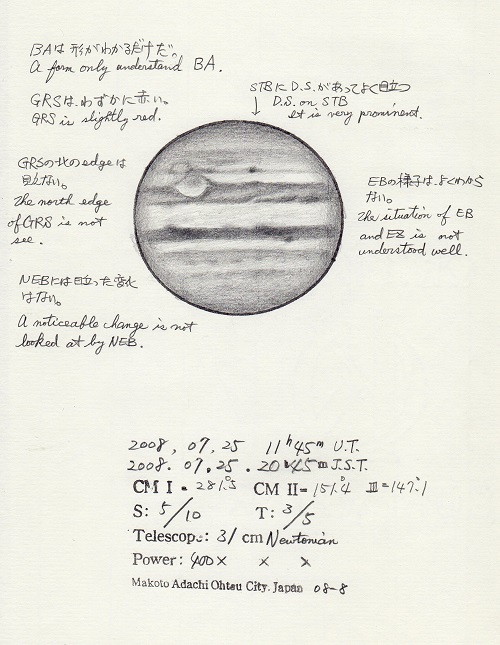 BAは形がわかるだけだ。
A form only understand BA.
GRSは、わずかに赤い。
GRS is slightly red.
STBにD.S.があってよく目立つ
D.S. on STB
It is very prominent.
GRSの北のedgeは
見えない。
The north edge
of GRS is not
see.
EBの様子は、よくわから
ない。
The situation of EB
and EZ is not
understood well.
NEBには目立った変化
はない。
A noticeable change is not
looked at by NEB.
2008, 07, 25 11h 45m U.T.
2008. 07. 25. 20h 45m J.S.T.
CM I = 281.°5 CM II = 151.°4 III = 147.°1
S: 5/10 T: 3/5
Telescope: 31 cm Newtonian
Power: 400× × ×
Makoto Adachi Ohtsu City. Japan 08-8